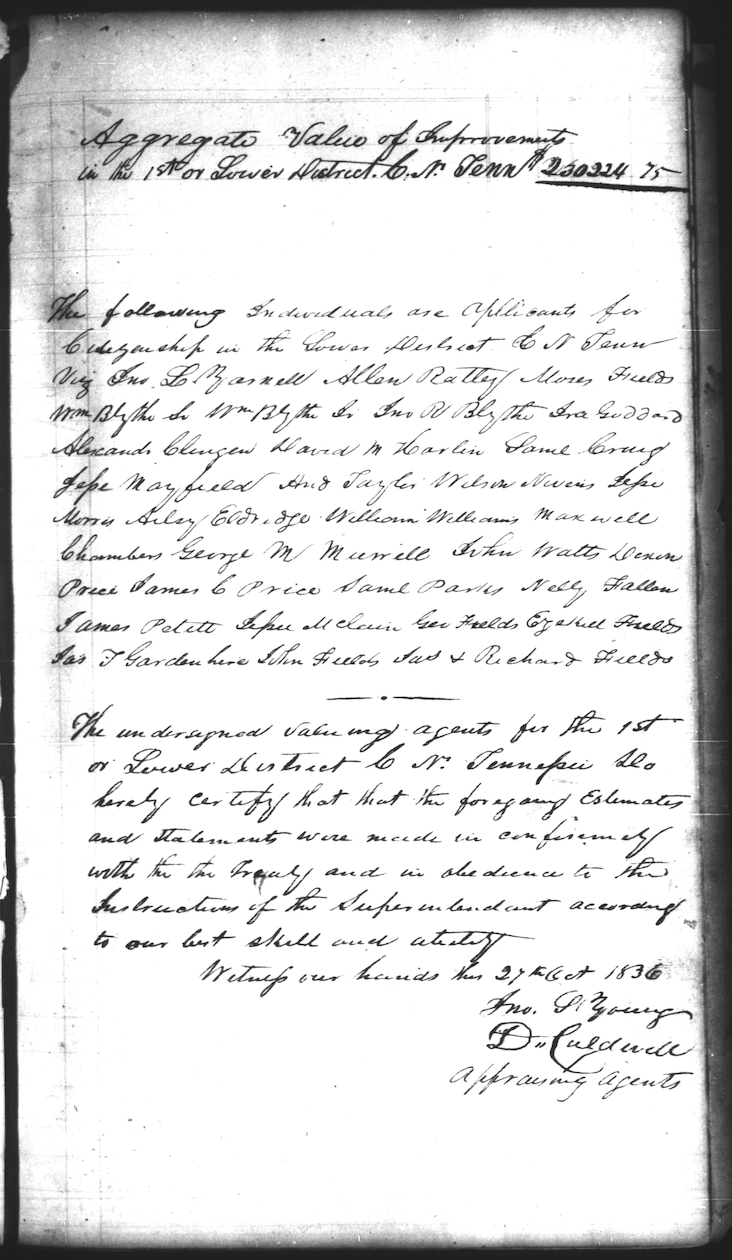 Aggregate Value of Improvements
in the 1st or Lower District. C. N. Tenn $230224 75
The following Individuals are Applicants for
Citizenship in the Lower District C N Tenn
Viz Jno. L. Yarnell Allen Ratley Moses Fields
Wm Blythe Sr Wm Blythe Jr Jno R Blythe Ira Goddard
Alexandr Clingen David M Harlin Saml Craig
Jesse Mayfield And Taylor Wilson Nivens Jesse
Morris Ailsy Eldridge William Williams Maxwell
Chambers George M Murrell John Watts
Price James C Price Saml Parks Nelly Fallen
James Petett Jesse Mclain Geo Fields Ezekiel Fields
Jas T Gardenhire John Fields Jas & Richard Fields
The undersigned valueing agents for the 1st
or Lower District C N. Tennessee Do
hereby certify that that the foregoing Estemates
and statements were made in conformity
with the the Treaty and in obedience to the
Instructions of the Superintendant according
to our best skill and
Witness our hands this 27th Oct 1836
Jno. S. Young
D. Caldwell
Appraising Agents